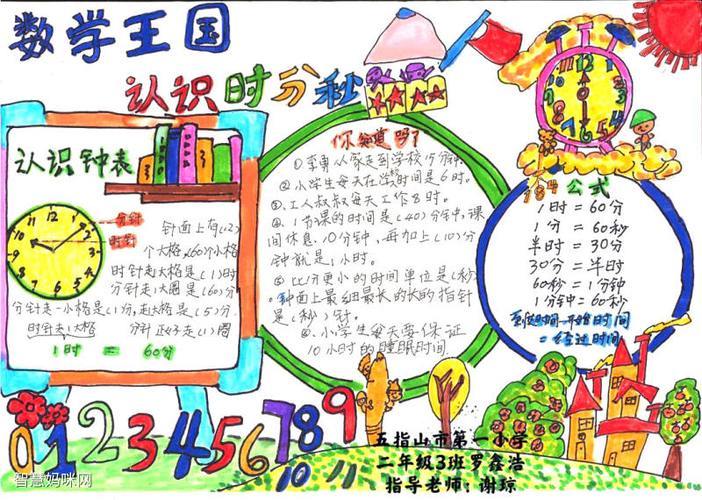 数学王国
认识时分秒
认识钟表
12
11
1
10
2
9
3
8
4
7
5
6
分针
时针
针面上有(12)
个大格,(60)个小格
时针走1大格是(1)时
分针走1大圈是(60)分
分针走一小格是(1)分,走大格是(5)分.
时针走1大格 分针正好走(1)圈
1时 = 60分
你知道吗?
①李勇从家走到学校15分钟.
②小学生每天在学校时间是6时.
③.工人叔叔每天工作8时.
④.1节课的时间是(40)分钟,课
间休息.10分钟,再加上(10)分
钟就是1小时.
⑤比分更小的时间单位是(秒)
钟面上最细最长的长的指针
是(秒)针.
⑥.小学生每天要保证
10小时的睡眠时间.
公式
1时=60分
1分=60秒
半时=30分
30分=半时
60秒=1分钟
1分钟=60秒
开始时间
=经过时间
0123456789
10 11
五指山市第一小学
二年级3班罗鑫浩
指导老师:谢琼
智慧妈咪网